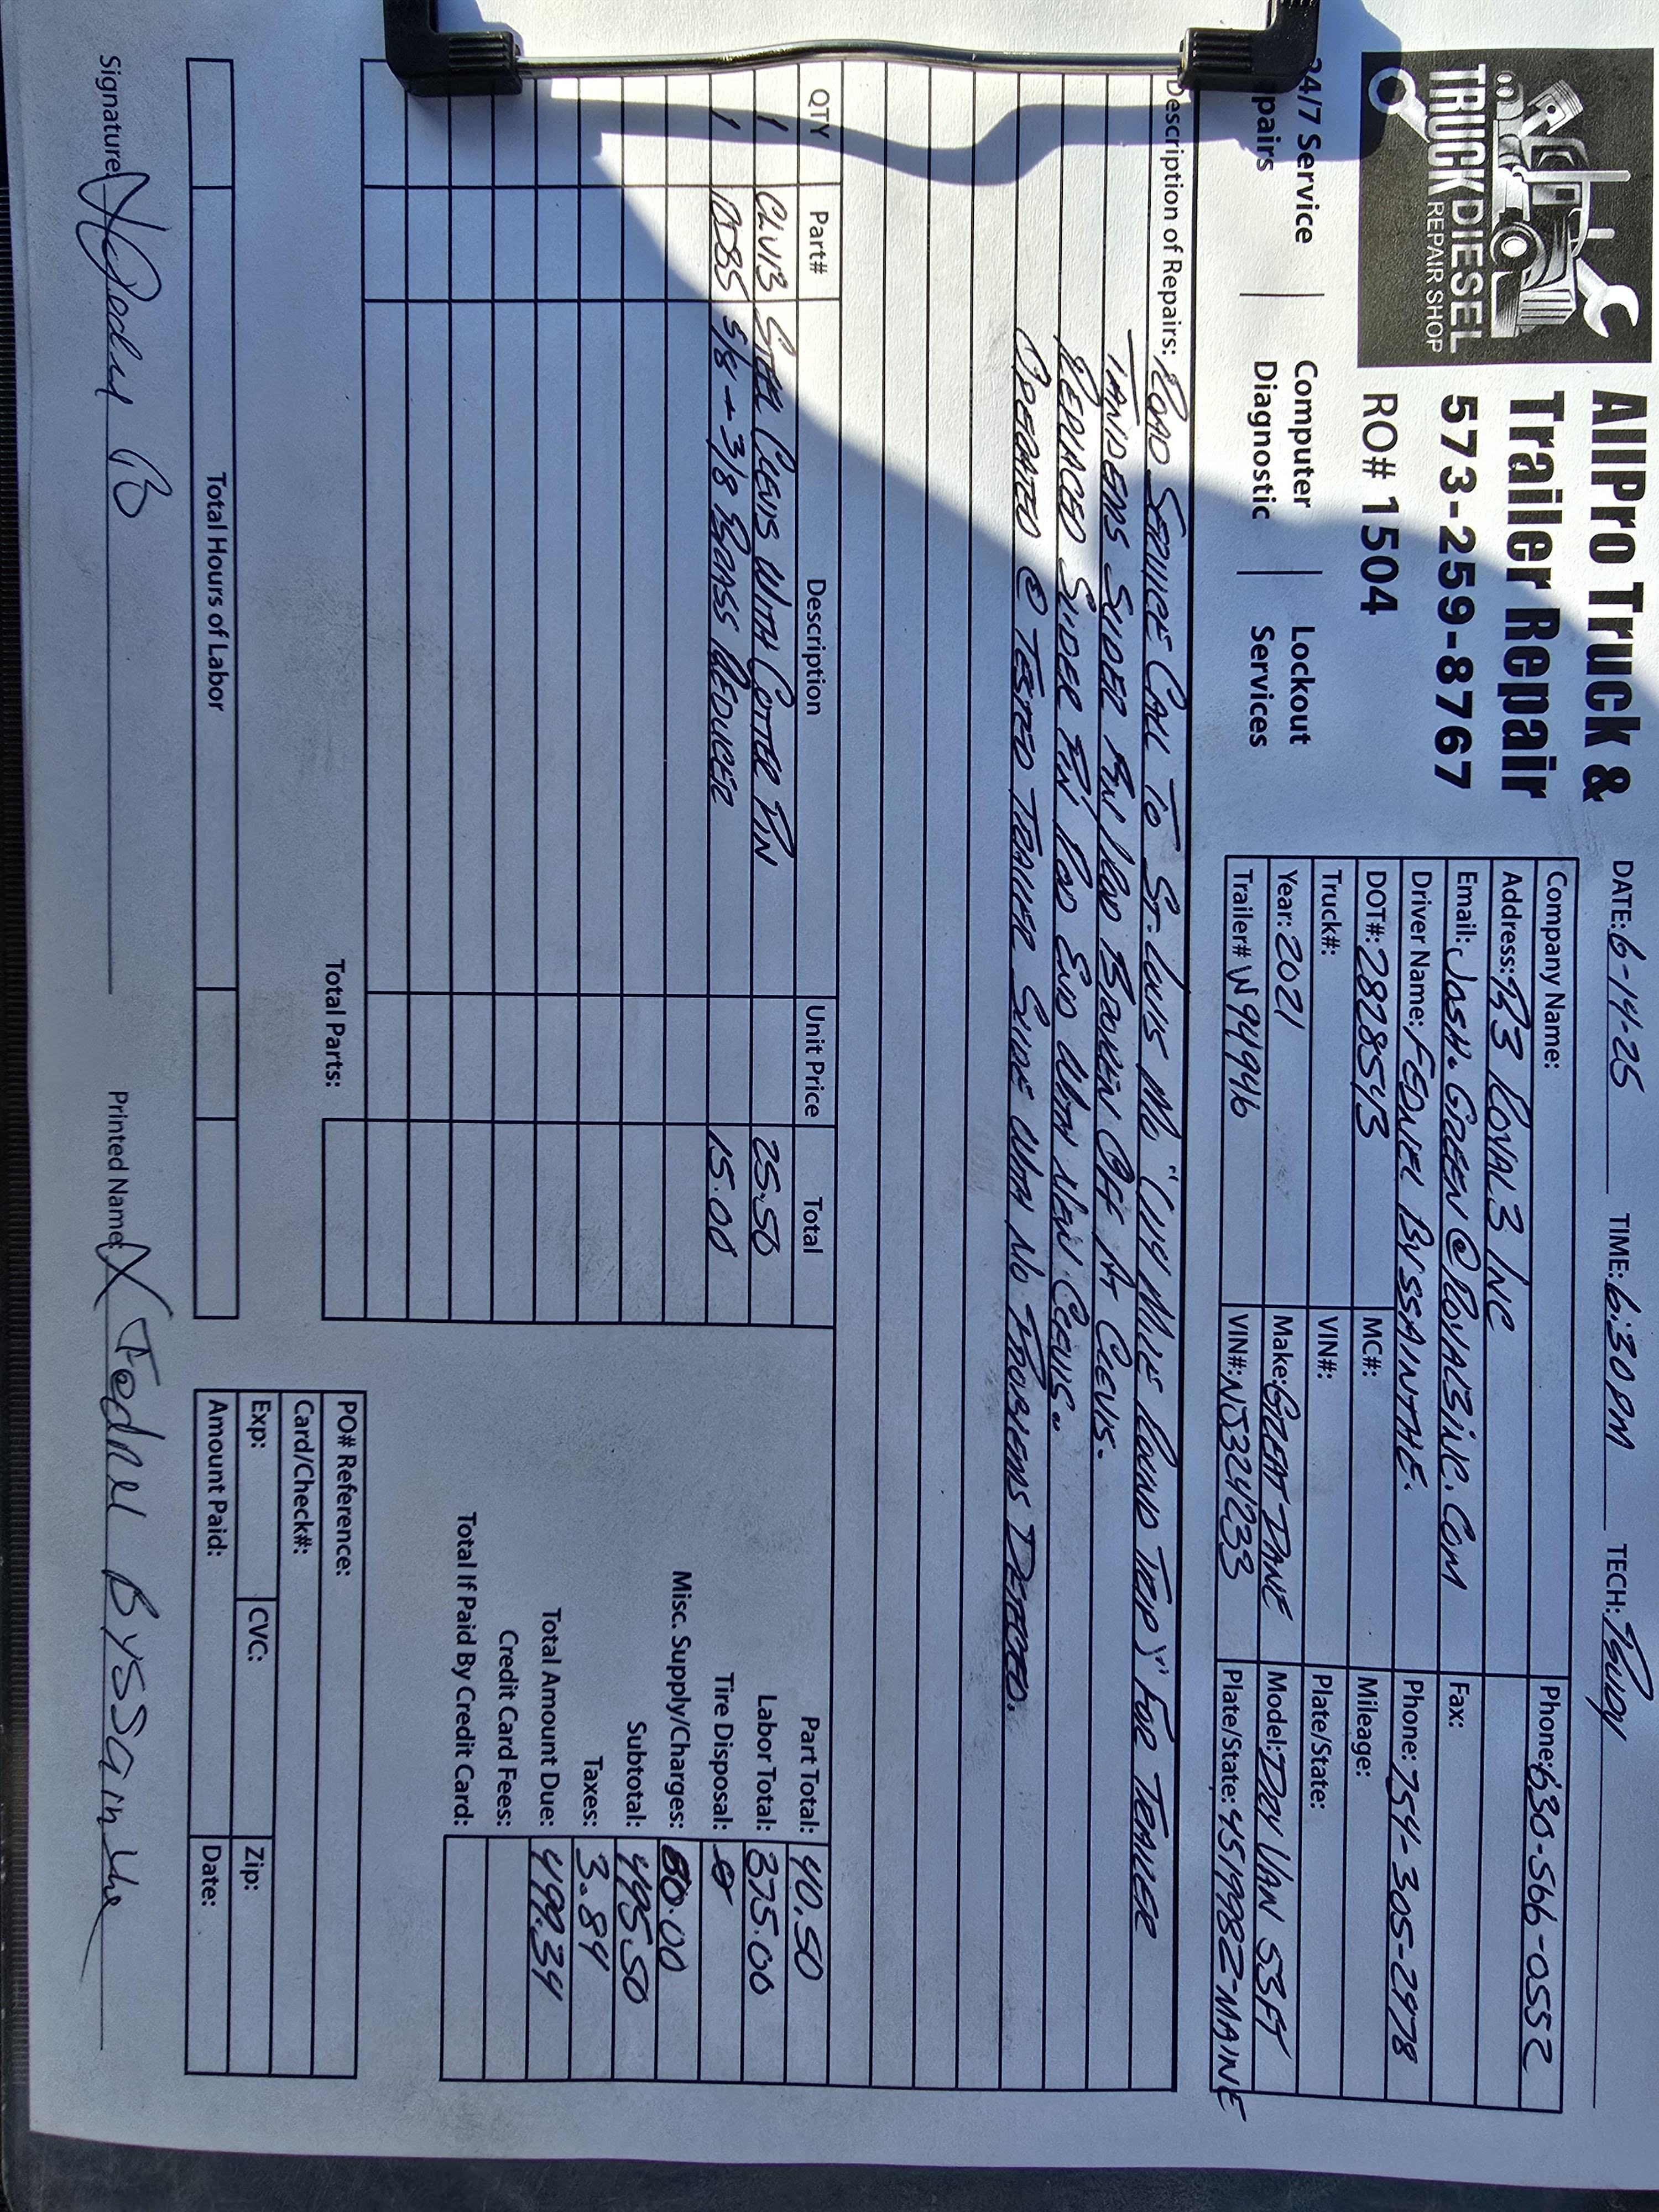 TRUCK DIESEL
REPAIR SHOP
AllPro Truck &
Trailer Repair
573-259-8767
RO# 1504
24/7 Service | Computer | Lockout
pairs Diagnostic Services
DATE: 6-14-25 TIME: 6:30PM TECH:
Company Name: Phone: 630-566-0552
Address: R3 ROYAL3 INC
Email: JOSH.GREEN@ROYAL3INC.COM Fax:
Driver Name: FEDNEL BYSSAINTHE. Phone: 754-305-2978
DOT#: 2828543 MC#: Mileage:
Truck#: VIN#: Plate/State:
Year: 2021 Make: GREAT DANE Model: DRY VAN 53FT
Trailer# W94946 VIN#: NJ324233 Plate/State: 4519982-MAINE
Description of Repairs: ROAD SERVICE CALL TO ST. LOUIS MO "(114 MILE ROUND TRIP)" FOR TRAILER
TANDEMS SLIDER PIN ROD BROKEN OFF AT CLEVIS.
REPLACED SLIDER PIN ROD END WITH NEW CLEVIS.
OPERATED @ TESTED TRAILER SLIDE WITH NO PROBLEMS DETECTED.
QTY Part# Description Unit Price Total
1 CLV13 STEEL CLEVIS WITH COTTER PIN 25.50
1 RDBS 5/8 → 3/8 BRASS REDUCER 15.00
Total Parts:
Total Hours of Labor
Part Total: 40.50
Labor Total: 375.00
Tire Disposal: Ø
Misc. Supply/Charges: 80.00
Subtotal: 495.50
Taxes: 3.84
Total Amount Due: 499.34
Credit Card Fees:
Total If Paid By Credit Card:
PO# Reference:
Card/Check#:
Exp: CVC: Zip:
Amount Paid: Date:
Signature: X B Printed Name: X Fednel Byssainthe